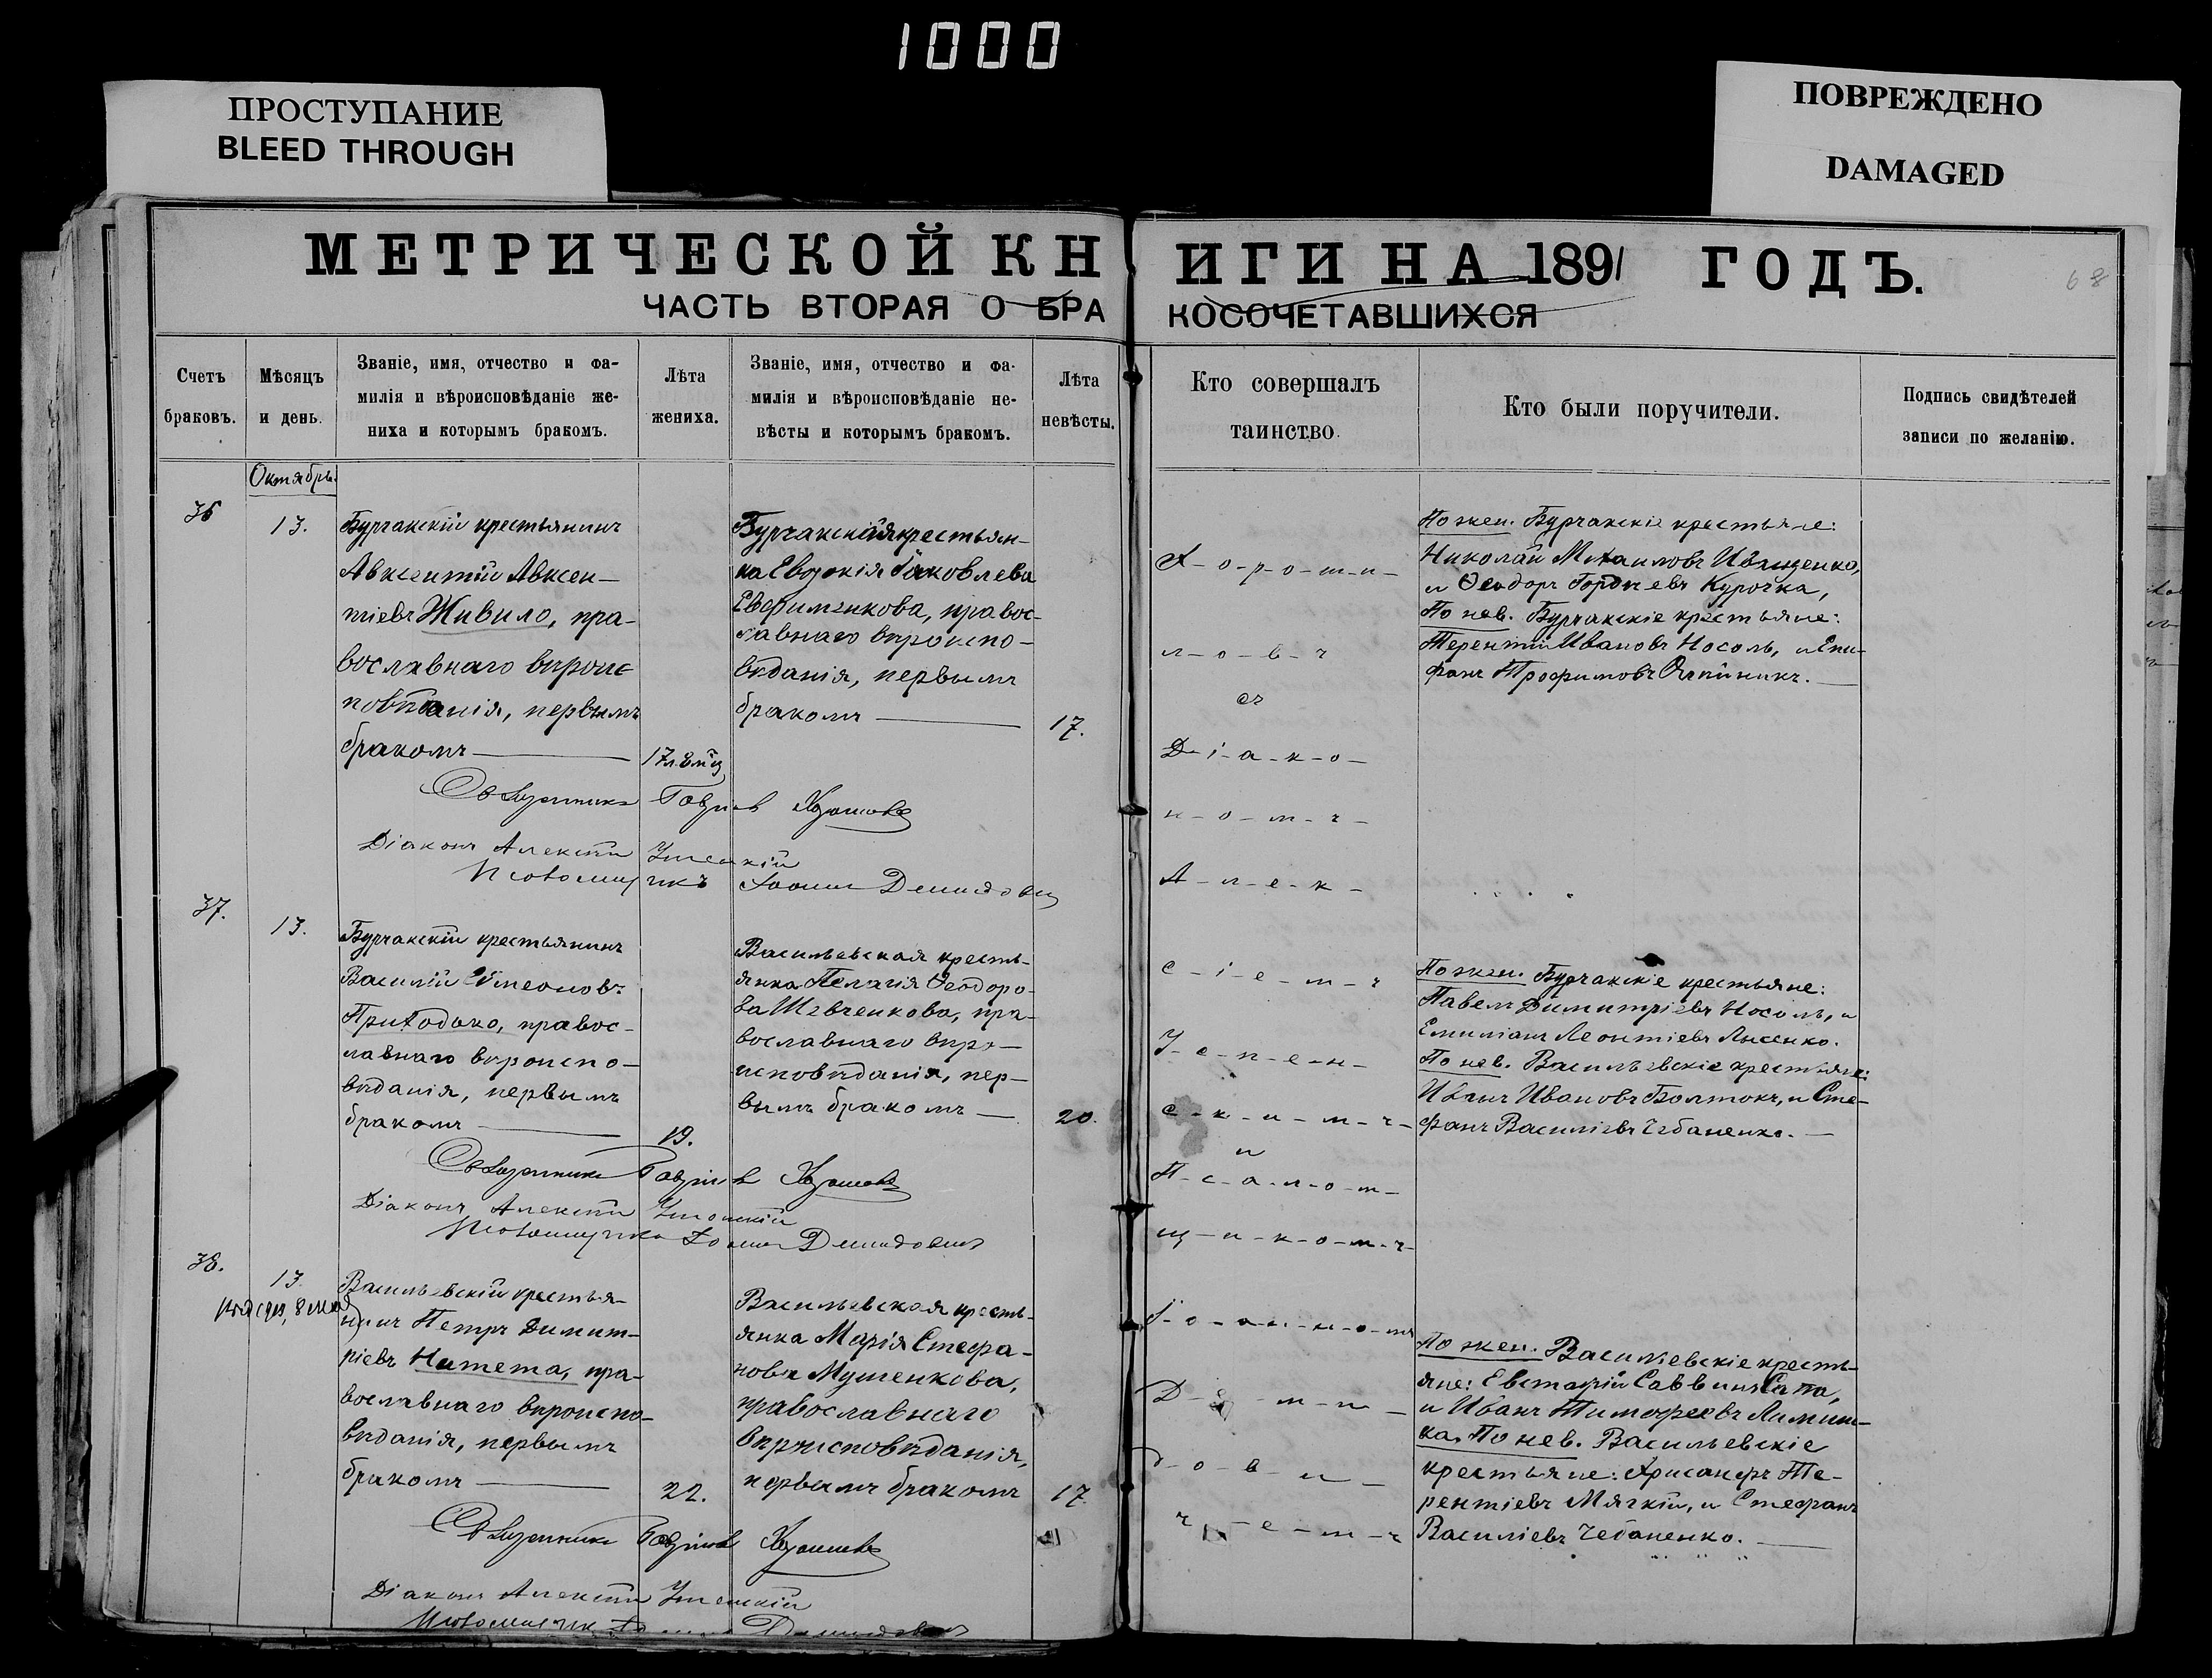 1000
ПРОСТУПАНИЕ
BLEED THROUGH
ПОВРЕЖДЕНО
DAMAGED
МЕТРИЧЕСКОЙ КНИГИ НА 1891 ГОДЪ.
68
ЧАСТЬ ВТОРАЯ О БРАКОСОЧЕТАВШИХСЯ
Счетъ
браковъ.
Мѣсяцъ
и день.
Званіе, имя, отчество и фа-
милія и вѣроисповѣданіе же-
ниха и которымъ бракомъ.
Лѣта
жениха.
Званіе, имя, отчество и фа-
милія и вѣроисповѣданіе не-
вѣсты и которымъ бракомъ.
Лѣта
невѣсты.
Кто совершалъ
таинство.
Кто были поручители.
Подпись свидѣтелей
записи по желанію.
Октябрь.
36
13.
Бурчакскій крестьянинъ
Авксентій Авксен-
тіевъ Живило, пра-
вославнаго вѣроис
повѣданія, первымъ
бракомъ
17 л. 8 м-ц
Бурчакская крестьян-
ка Евдокія Іаковлева
Евфименкова, правос-
лавнаго вѣроиспо-
вѣданія, первымъ
бракомъ
17.
Х-о-р-о-ш-и-
л-о-в-ъ
съ
Д-і-а-к-о-
н-о-м-ъ-
А-л-е-к-
с-і-е-м-ъ
У-с-п-е-н-
с-к-и-м-ъ-
и
П-с-а-л-о-м-
щ-и-к-о-м-ъ-
І-о-а-н-н-о-мъ
Д-е-м-и-
д-о-в-и-
ч-е-м-ъ
По жен. Бурчакскіе крестьяне:
Николай Михаиловъ Иващенко,
и Ѳеодоръ Гордіевъ Курочка,
По нев. Бурчакскіе крестьяне:
Терентій Ивановъ Носоль, и Епи-
фанъ Трофимовъ Олейникъ.
Священникъ Гавріилъ Хорошиловъ
Діаконъ Алексѣй Успенскій
Псаломщикъ Іоаннъ Демидовичъ
37.
13.
Бурчакскій крестьянинъ
Василій Сѵмеоновъ
Приходько, правос-
лавнаго вѣроиспо-
вѣданія, первымъ
бракомъ
19.
Васильевская кресть-
янка Пелагія Ѳеодоро-
ва Шевченкова, пра-
вославнаго вѣро-
исповѣданія, пер-
вымъ бракомъ
20.
По жен. Бурчакскіе крестьяне:
Павелъ Димитріевъ Носоль, и
Емиліанъ Леонтіевъ Лысенко.
По нев. Васильевскіе крестьяне:
Иванъ Ивановъ Болтокъ, и Сте-
фанъ Василіевъ Чебаненко.
Священникъ Гавріилъ Хорошиловъ
Діаконъ Алексѣй Успенскій
Псаломщикъ Іоаннъ Демидовичъ
38.
13.
Васильевскій крестья-
нинъ Петръ Димит-
ріевъ Нетета, пра-
вославнаго вѣроиспо-
вѣданія, первымъ
бракомъ
22.
Васильевская кресть-
янка Марія Стефа-
нова Мушенкова,
православнаго
вѣроисповѣданія,
первымъ бракомъ
17
По жен. Васильевскіе кресть-
яне: Евстафій Саввинъ Сапа,
и Иванъ Тимофеевъ Лимиш-
ка. По нев. Васильевскіе
крестьяне: Хрисанфъ Те-
рентіевъ Мягкій, и Стефанъ
Василіевъ Чебаненко.
Священникъ Гавріилъ Хорошиловъ
Діаконъ Алексѣй Успенскій
Псаломщикъ Іоаннъ Демидовичъ